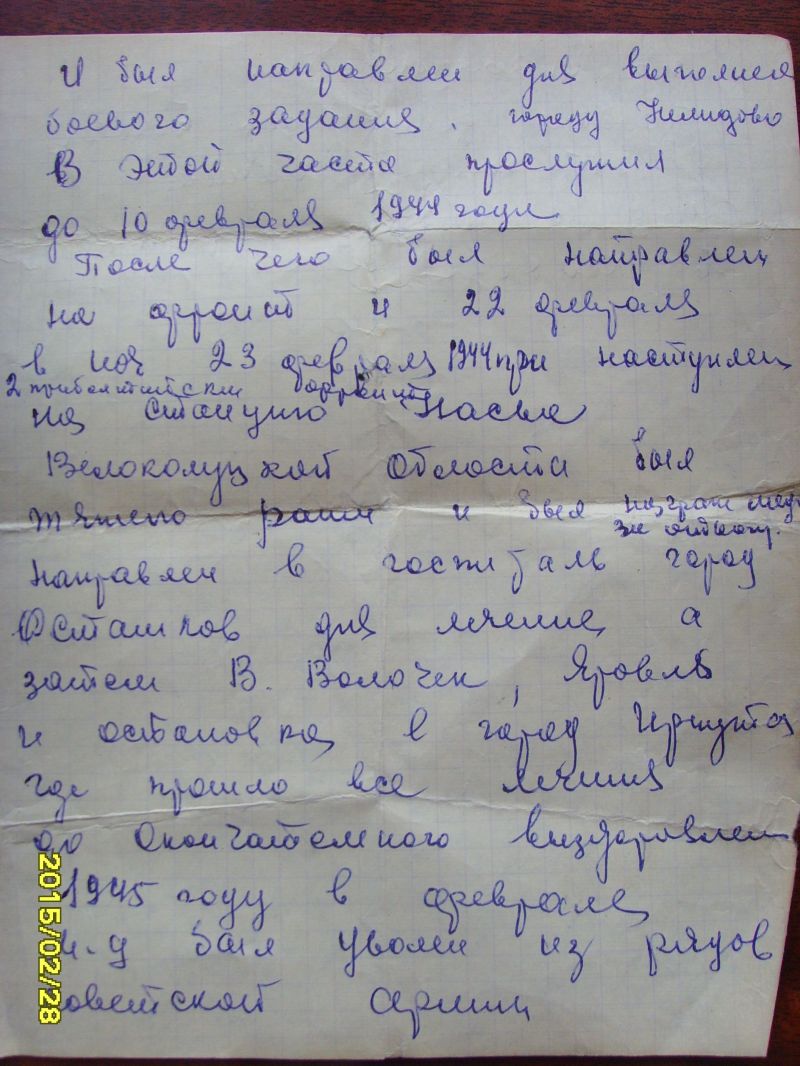 И был направлен для выполнен
боевого задания. городу Нелидово
В этой части прослужил
до 10 февраля 1944 года
После чего был направлен
на фронт и 22 февраля
в ноч 23 февраля 1944 при наступлен
2 прибалтийском фронте
на станцию Насва
Велоколуцкой области был
тяжело ранен и был награж мед
за отвагу.
направлен в госпиталь город
Осташков для лечения, а
затем В. Волочек, Яровль
и остановка в город Иркутск
где прошло все лечения
до окончательного выздоровлен
1945 году в феврале
и я был уволен из рядов
советской армии
2015/02/28